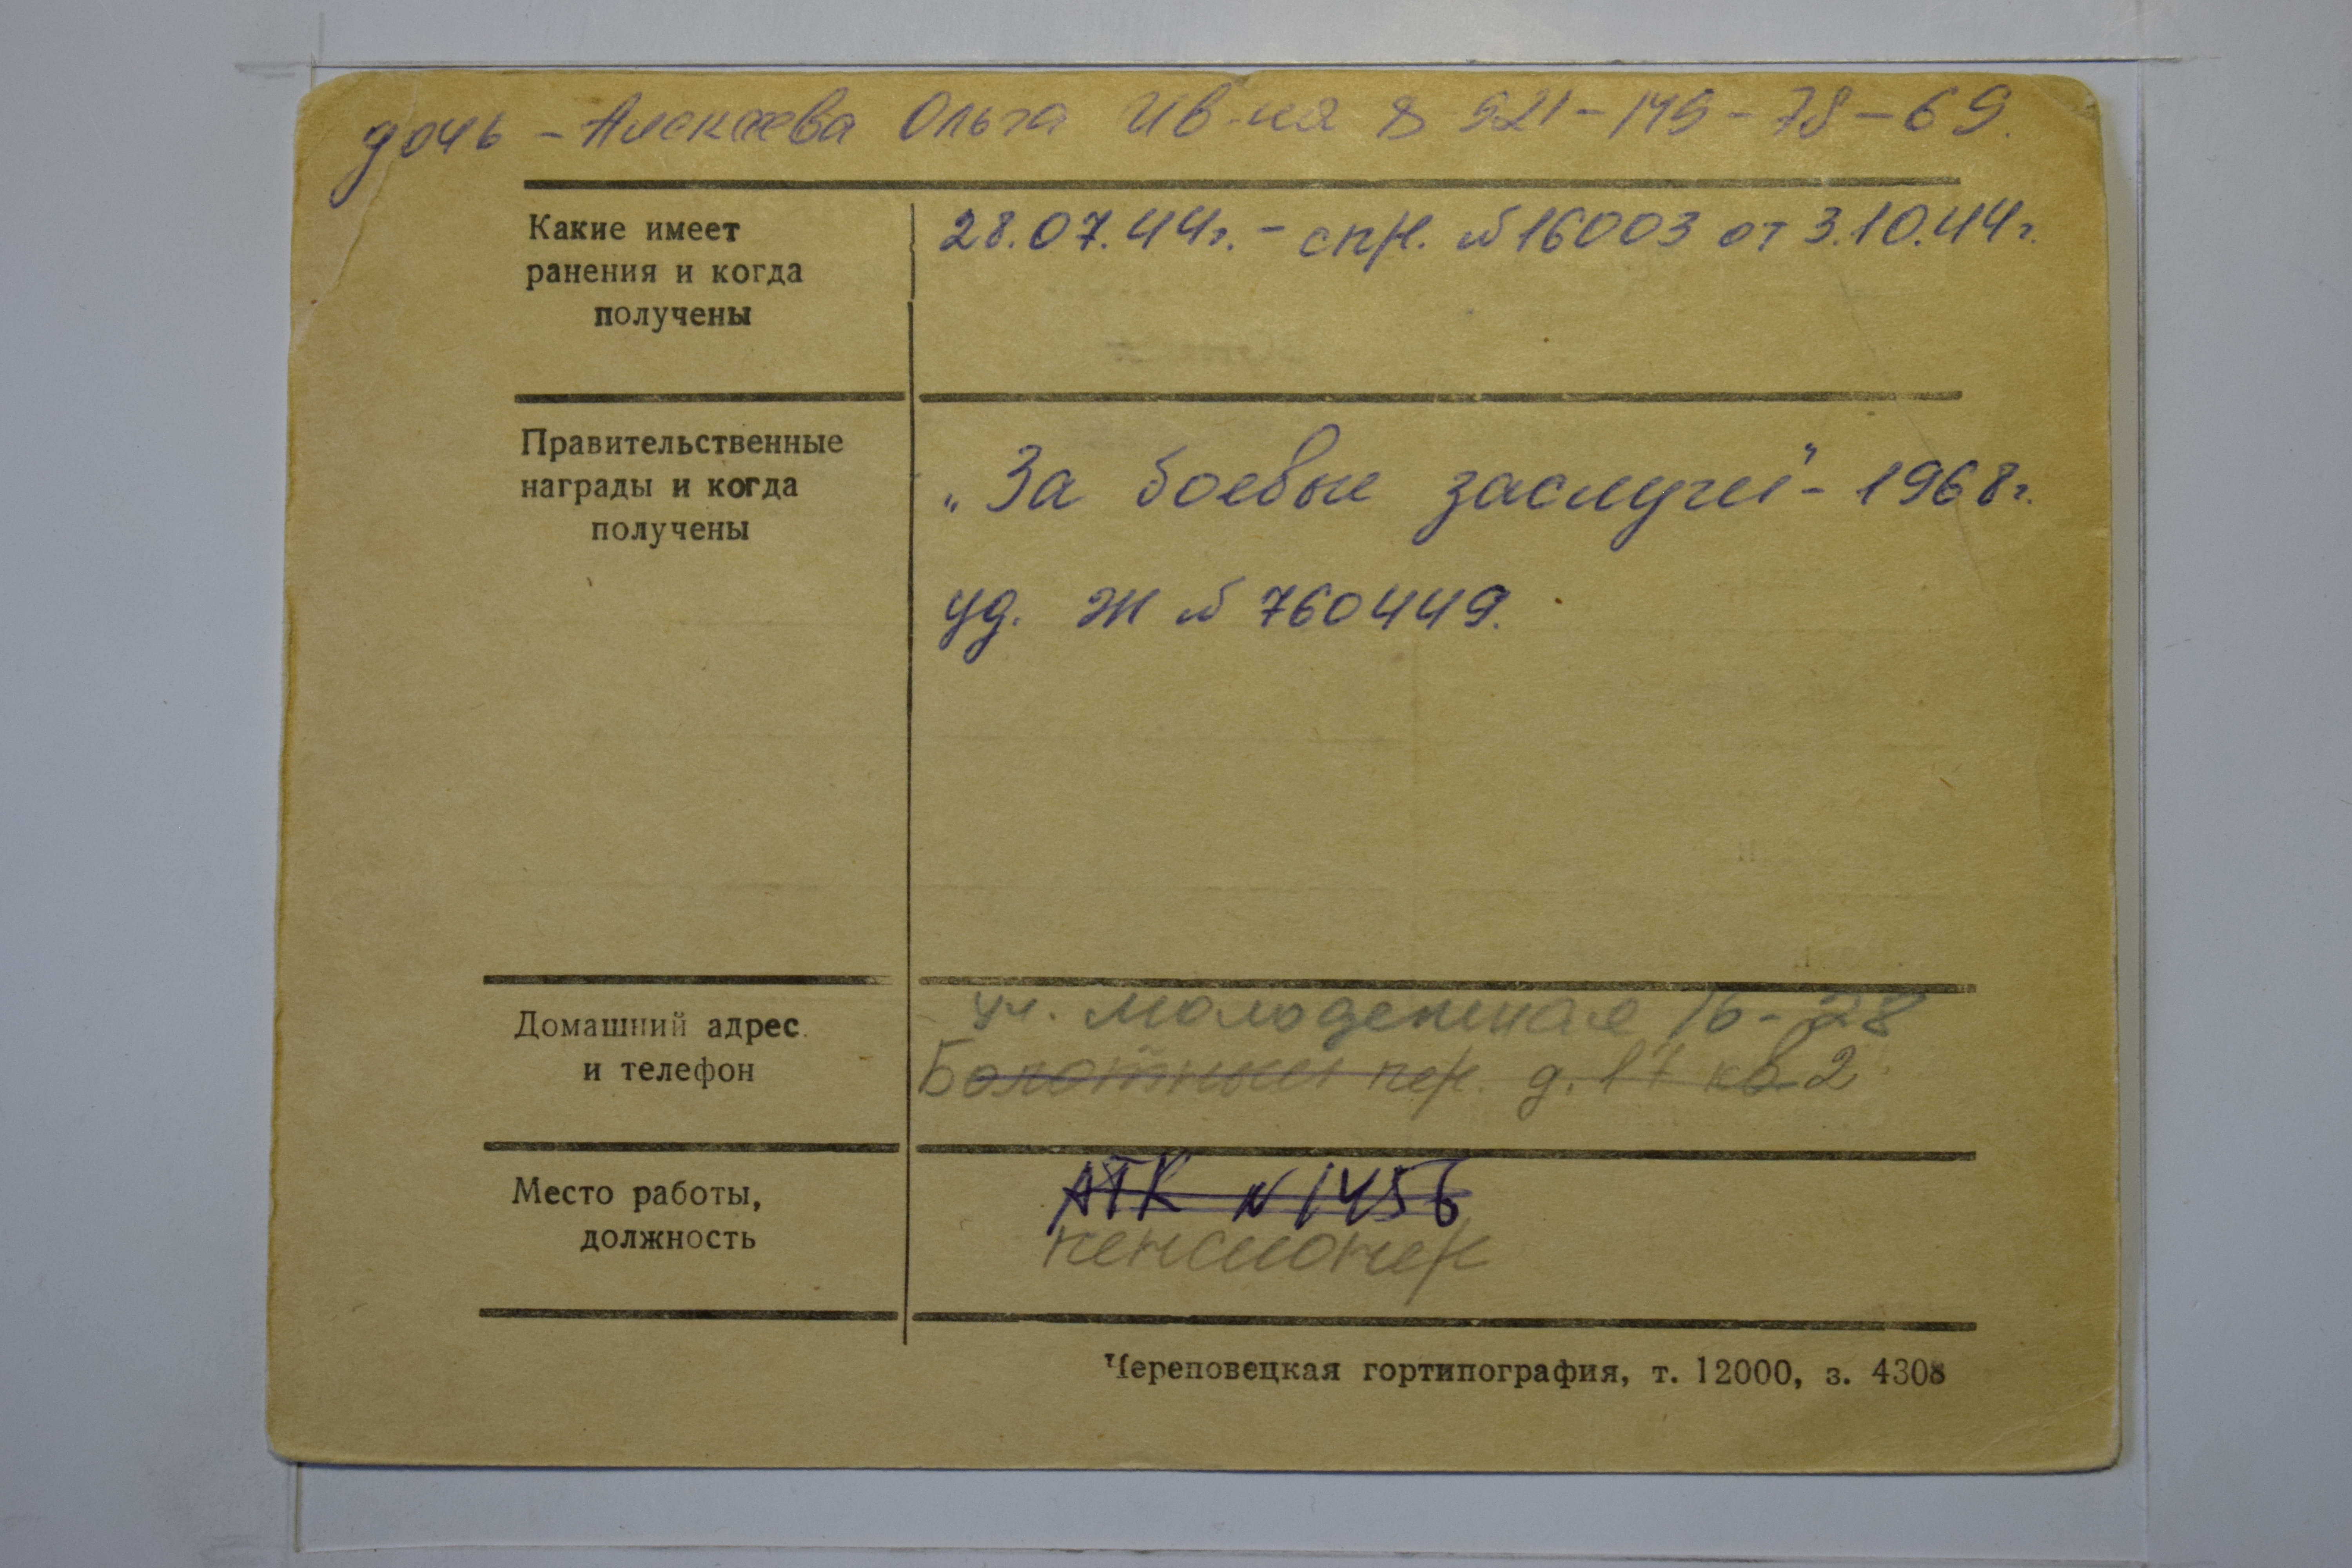 дочь – Алексеева Ольга Ив-на 8 921-149-78-69.
Какие имеет ранения и когда получены
28.07.44г. – спр. №16003 от 3.10.44г.
Правительственные награды и когда получены
„За боевые заслуги" – 1968г.
уд. Ж № 760449.
Домашний адрес и телефон
ул. Молодежная 16-28
Болотный пер. д. 17 кв. 2
Место работы, должность
АТК N 1456
пенсионер
Череповецкая гортипография, т. 12000, з. 4308